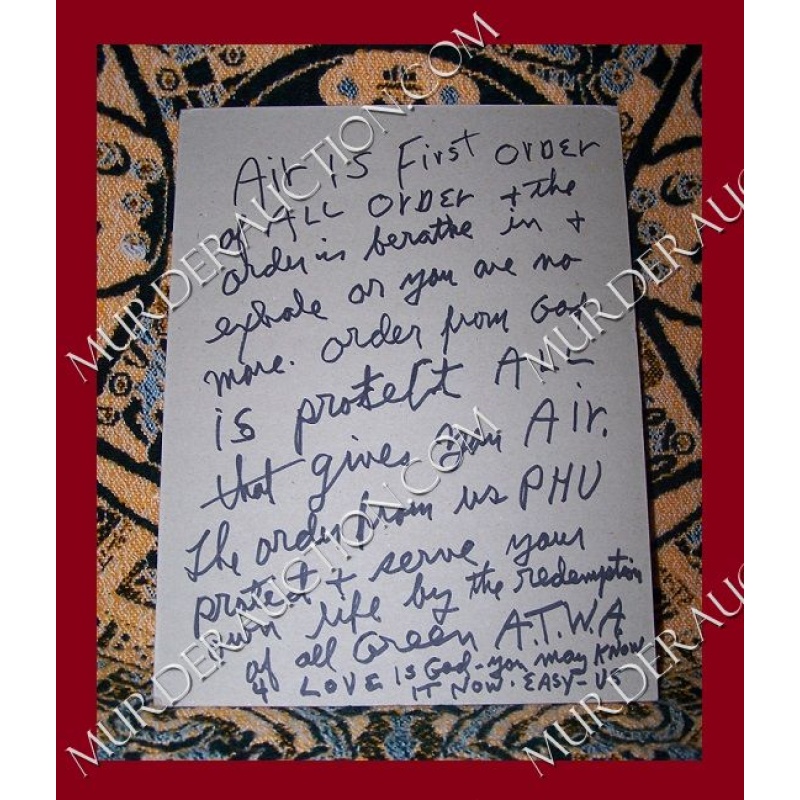 Air is First OrDEr
of ALL OrDEr + the
order is berathe in +
exhale or you are no
more. order from God
is protect ALL
that gives you Air.
The order from us PHU
protect + serve your
own life by the redemption
of all Green A.T.W.A.
4 LOVE IS God - you may KNOW
IT NOW. EASY - US
MURDERAUCTION.COM
MURDERAUCTION.COM
MURDERAUC
MURDERAUC